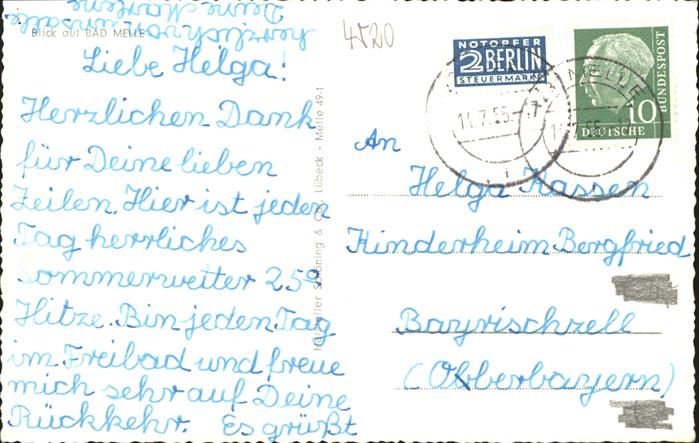 Blick auf BAD MELLE
Liebe Helga!
Herzlichen Dank
für Deine lieben
Zeilen. Hier ist jeden
Tag herrliches
Sommerwetter 25°
Hitze. Bin jeden Tag
im Freibad und freue
mich sehr auf Deine
Rückkehr. Es grüßt
herzlich von uns alle
Deine
Hersteller Schöning & Co., Lübeck - Melle 49f
4520
NOTOPFER
2 BERLIN
STEUERMARKE
DEUTSCHE
BUNDESPOST
10
MELLE
11.7.55.-17
An
Helga Kassen
Kinderheim Bergfried
Bayrischzell
(Obberbayern)